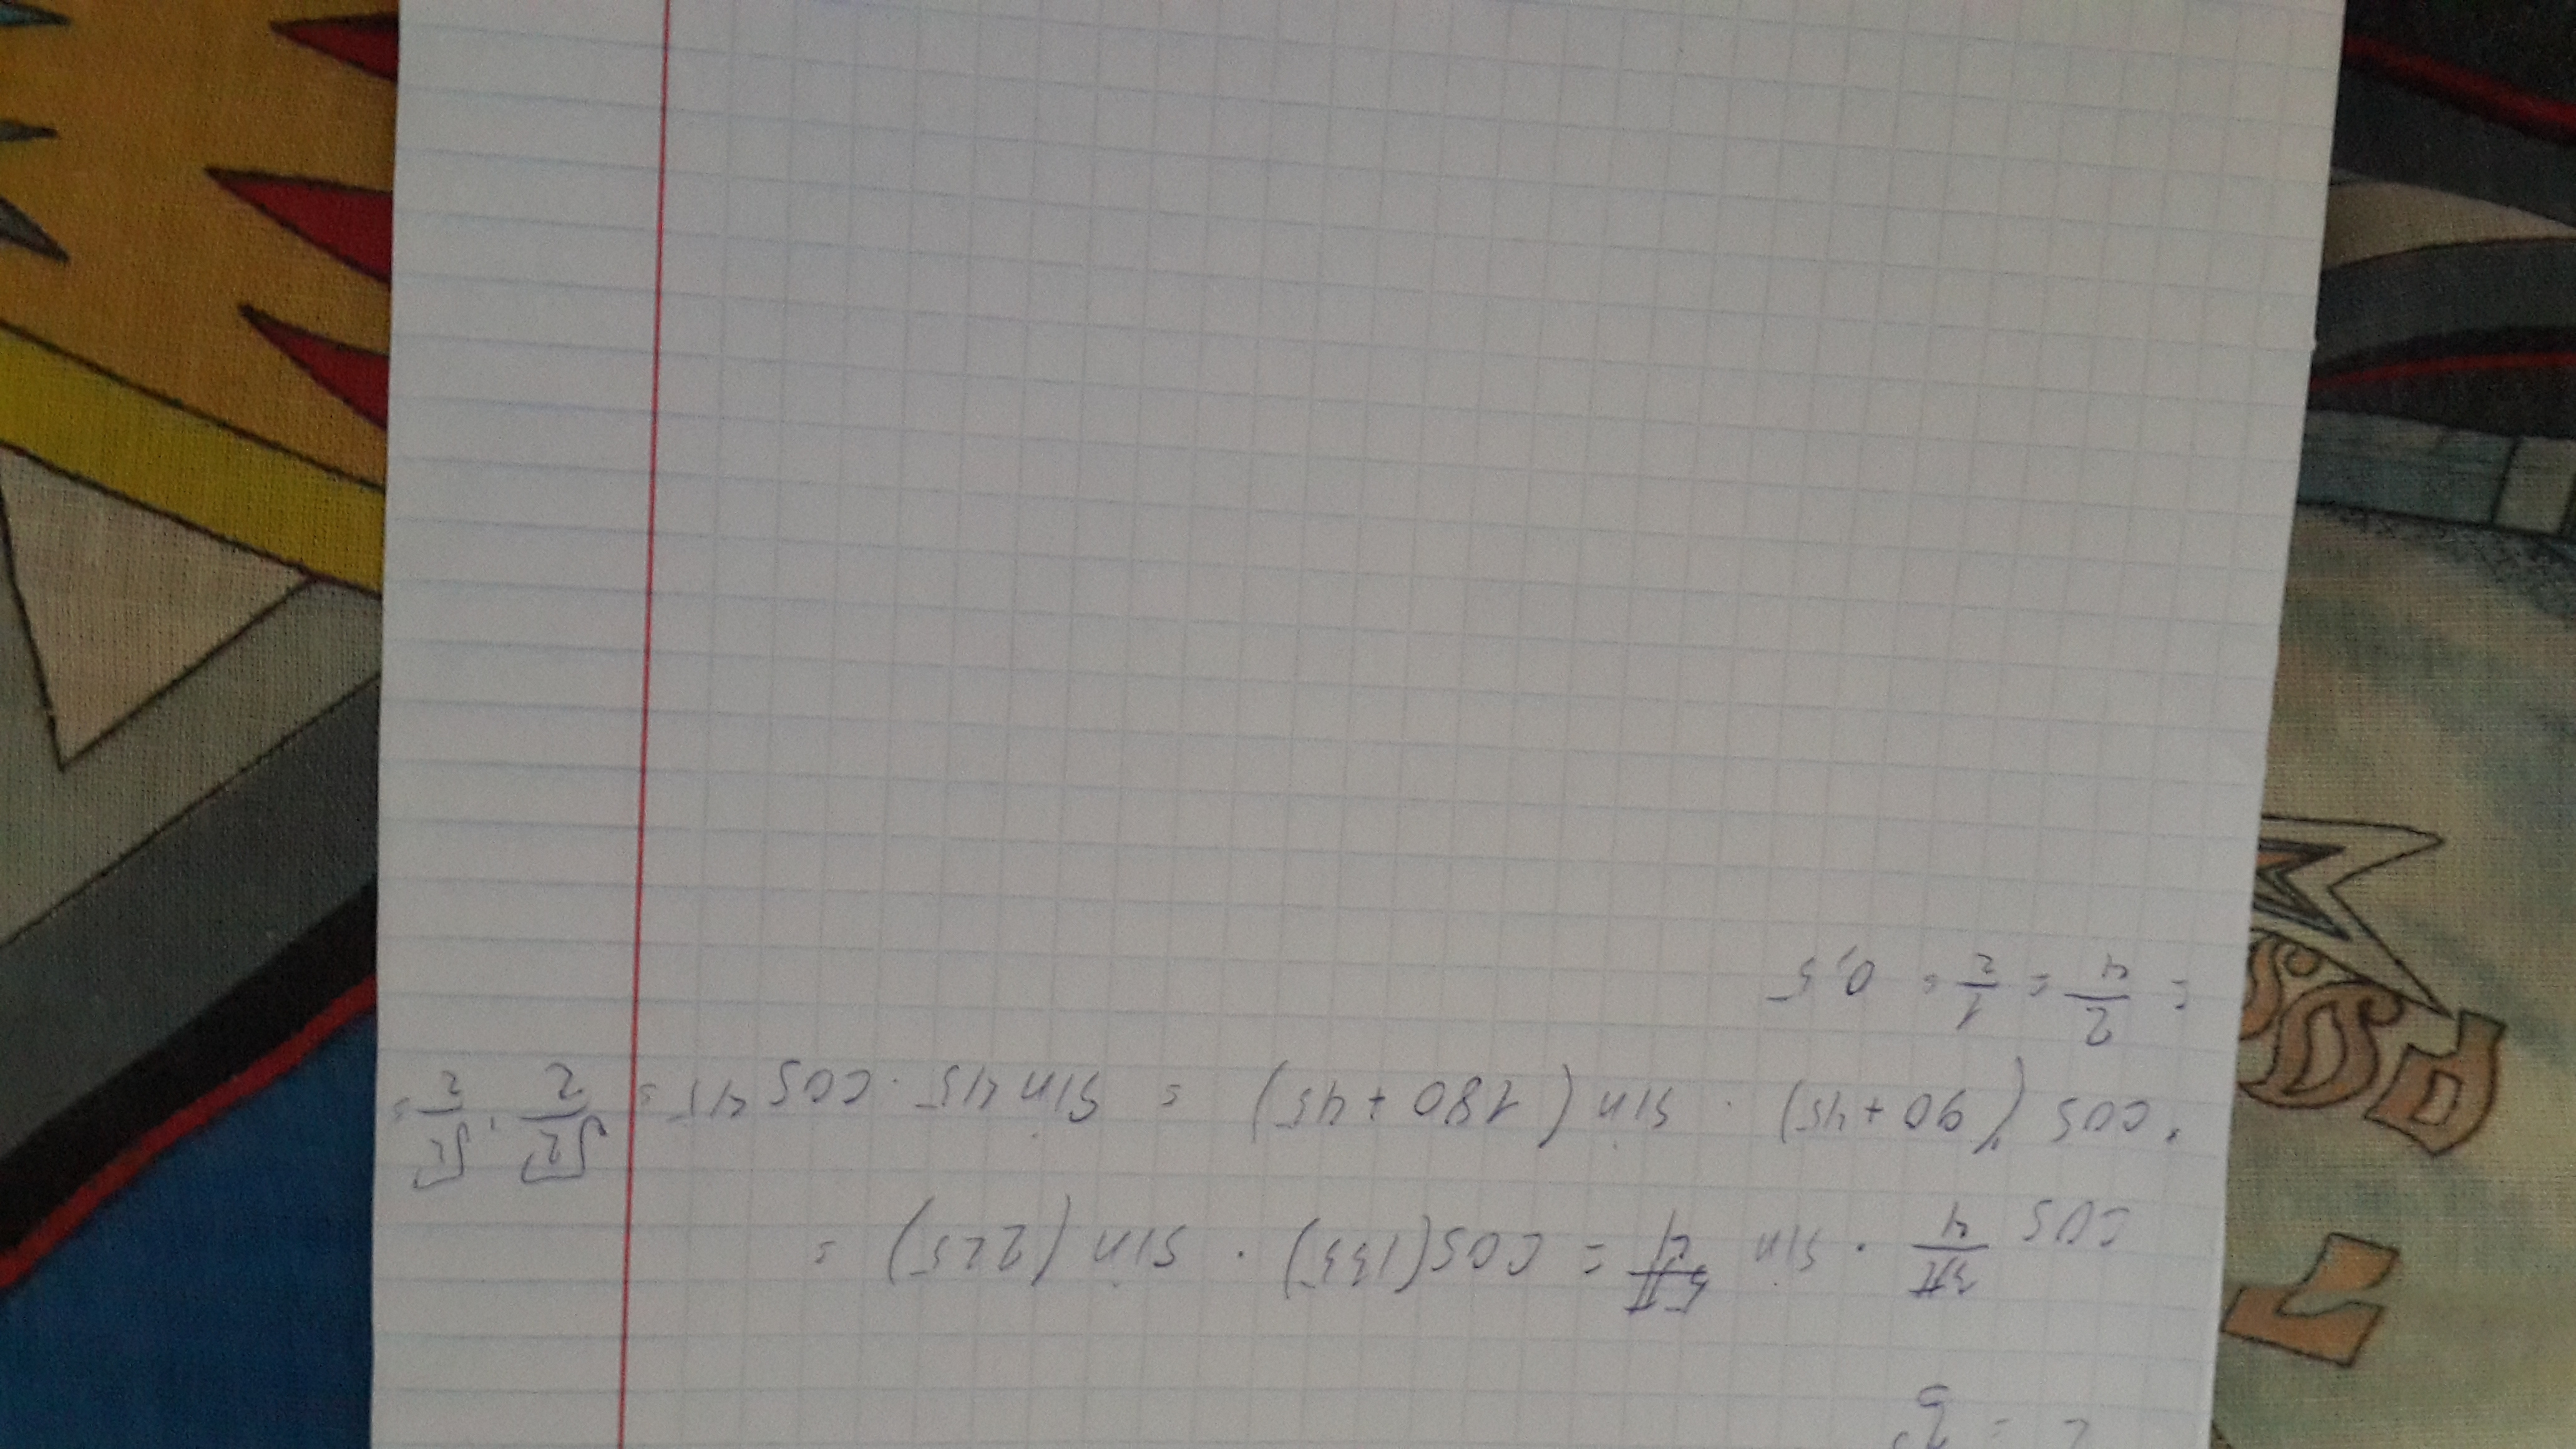 cos 3π/4 · sin 5π/4 = cos(135) · sin(225) =
= cos(90+45) · sin(180+45) = sin45 · cos45 = √2/2 · √2/2 =
= 2/4 = 1/2 = 0,5